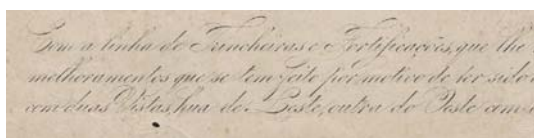 Com a linha de Trincheiras e Fortificações, que lhe
melhoramentos que se tem feito por motivo de ter sido
com duas Vistas, hua de Leste, outra do Oeste com